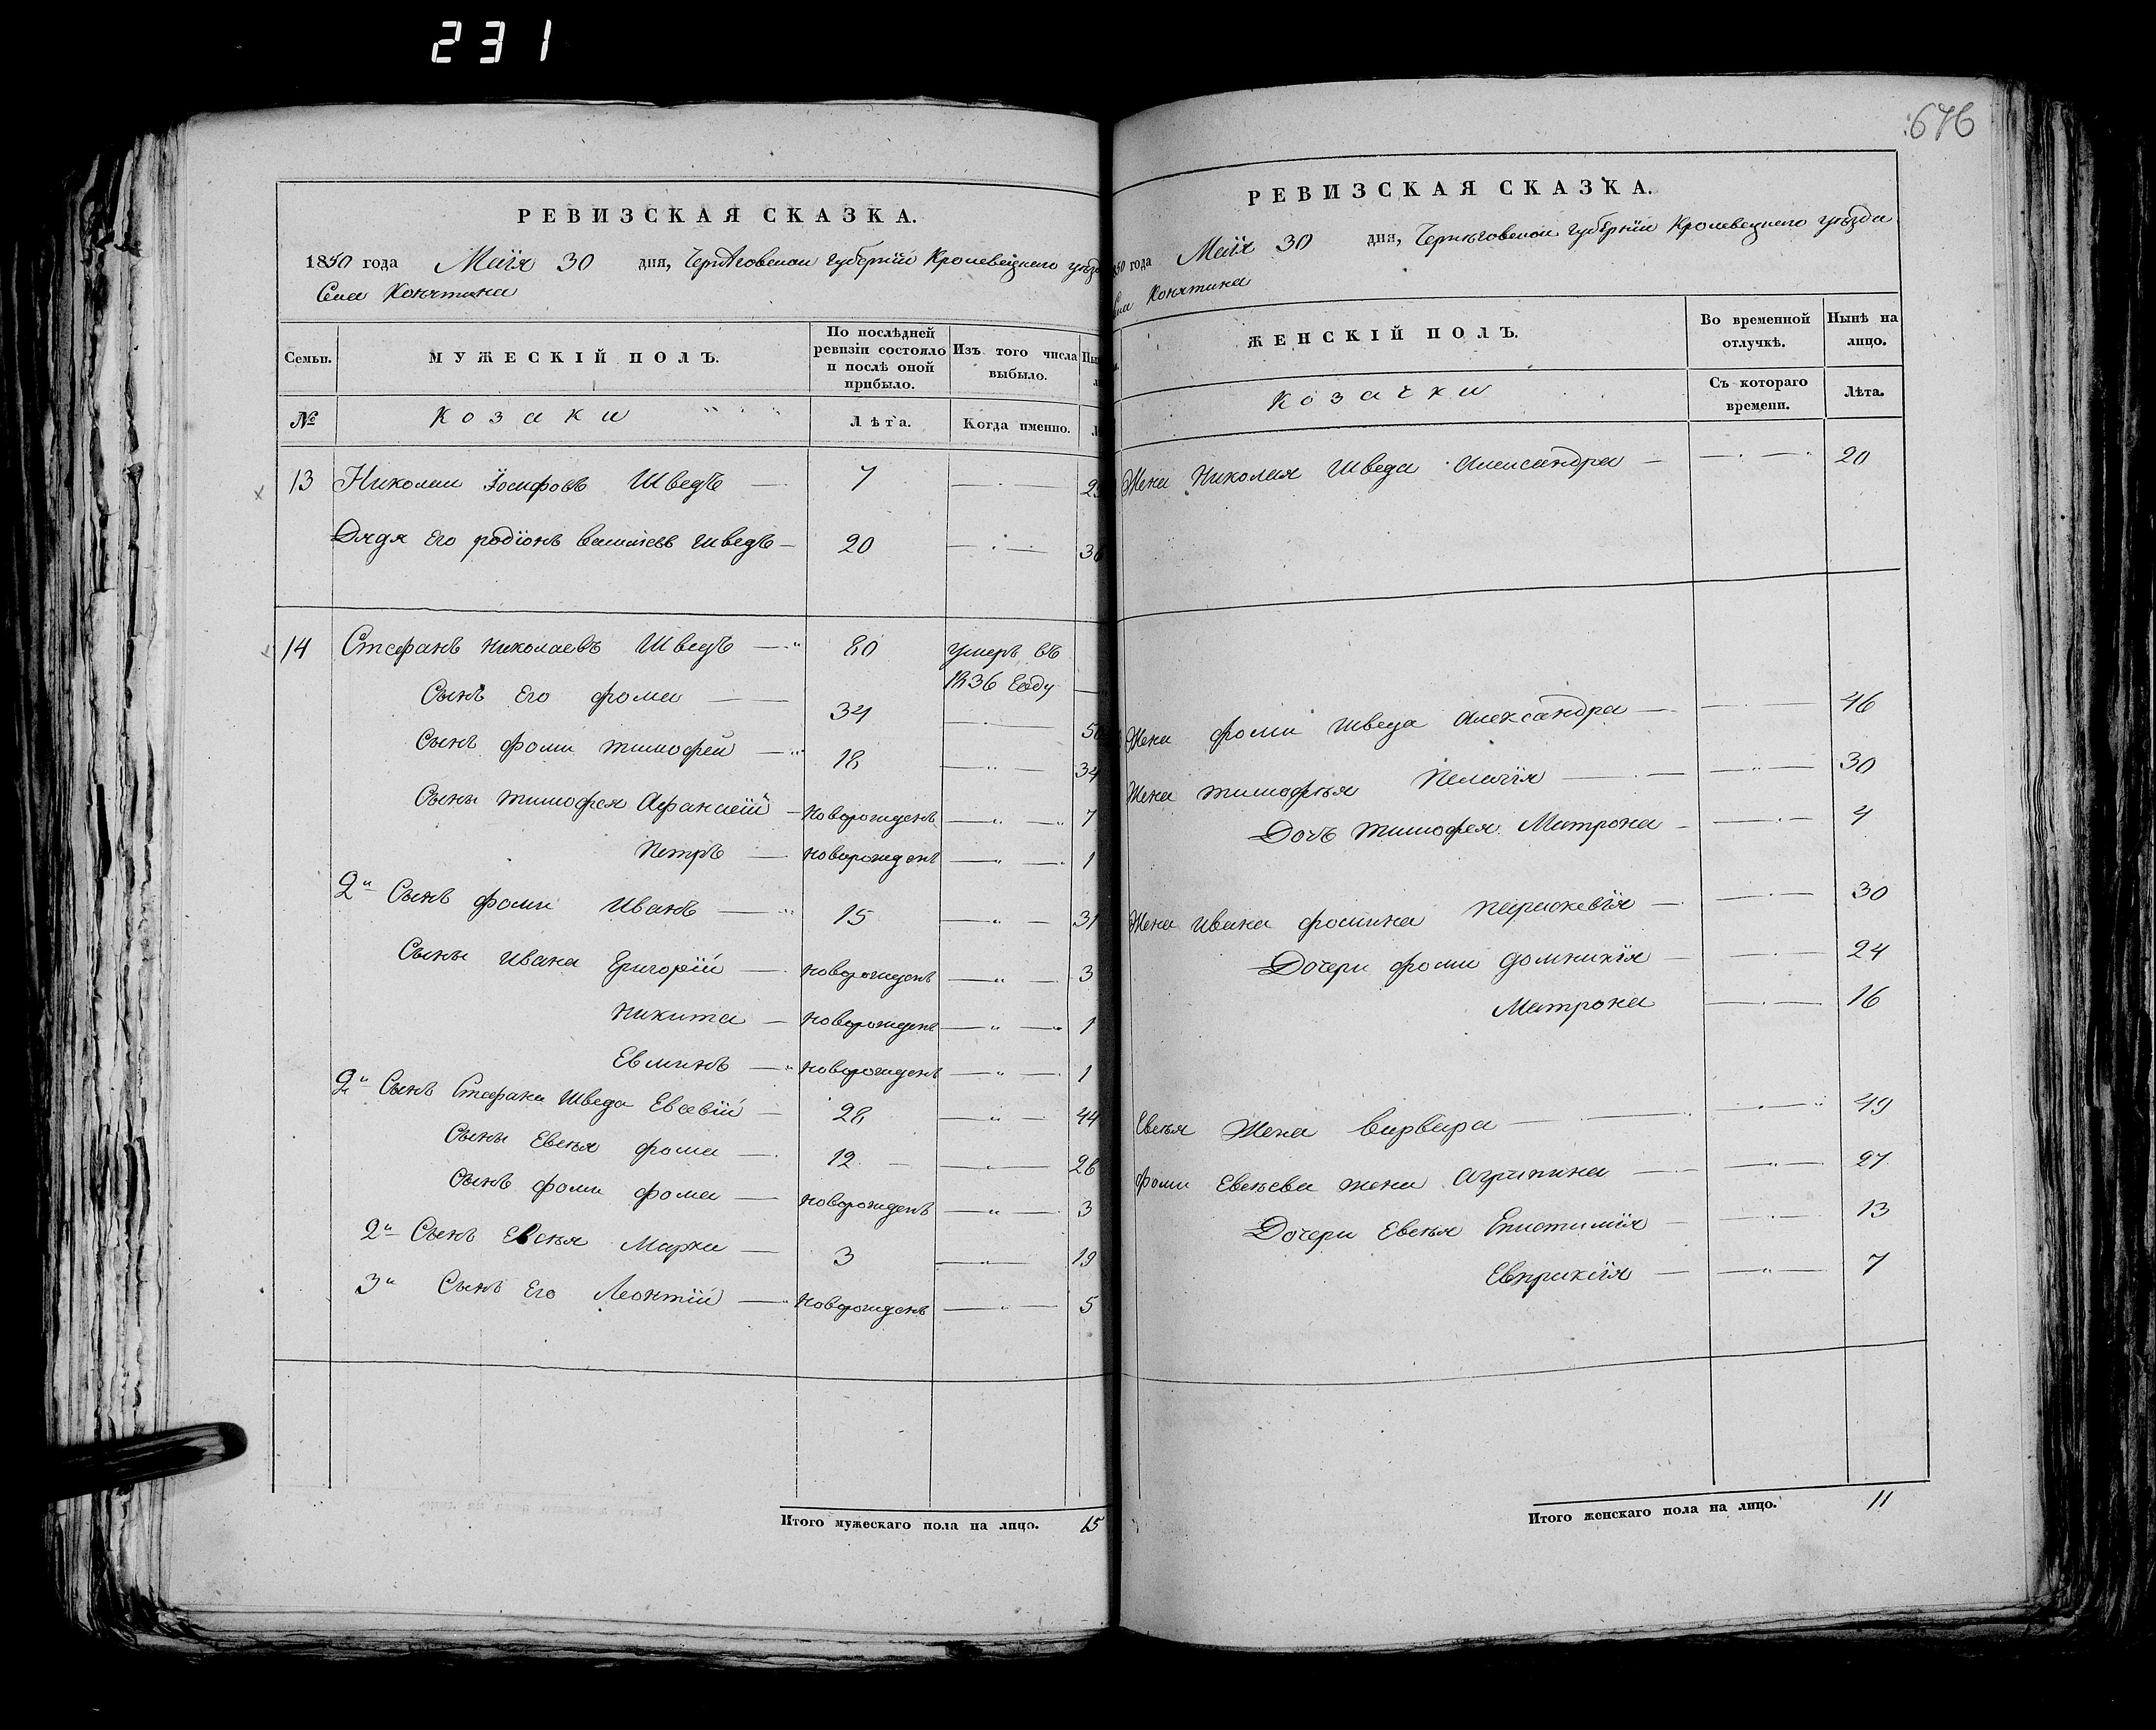 231
676
РЕВИЗСКАЯ СКАЗКА.
1850 года Маія 30 дня, Черниговской губерніи Кролевецкаго уѣзда
Села Конятина
Семьи. МУЖЕСКІЙ ПОЛЪ. По послѣдней ревизіи состояло и послѣ оной прибыло. Изъ того числа выбыло.
№ Козаки Лѣта. Когда именно.
13 Николай Іосифовъ Шведъ — 7
Дядя Его родіонъ васильевъ Шведъ — 20 36
14 Стефанъ Николаевъ Шведъ — 80 умеръ въ
1836 Году
Сынъ Его фома — 34 50
Сынъ фомы тимофей — 18 34
Сыны тимофея Афанасій — новорожденъ 7
Петръ — новорожденъ 1
2й Сынъ фомы Иванъ — 15 31
Сыны Ивана Григорій — новорожденъ 3
Никита — новорожденъ 1
новорожденъ 1
2й Сынъ Стефана Шведа Евсевій — 28 44
Сыны Евсея фома — 12 28
Сынъ фомы фома — новорожденъ 3
2й Сынъ Евсея Марко — 3 19
3й Сынъ Его Леонтій — новорожденъ 5
Итого мужескаго пола на лицо. 15
РЕВИЗСКАЯ СКАЗКА.
года Маія 30 дня, Черниговской губерніи Кролевецкаго уѣзда
Конятина
ЖЕНСКІЙ ПОЛЪ. Во временной отлучкѣ. Нынѣ на лицо.
Козачки Съ котораго времени. Лѣта.
Жена Николая Шведа Александра — 20
Жена фомы Шведа Александра — 46
Жена тимофѣя Пелагія — 30
Дочь тимофея Матрона — 4
Жена Ивана фомина Параскевія — 30
Дочери фомы Домникія — 24
Матрона 16
Евсея Жена Варвара — 49
фомы Евсеева жена Агрипина — 27
Дочери Евсея Епистимія — 13
Евпраксія — 7
Итого женскаго пола на лицо. 11